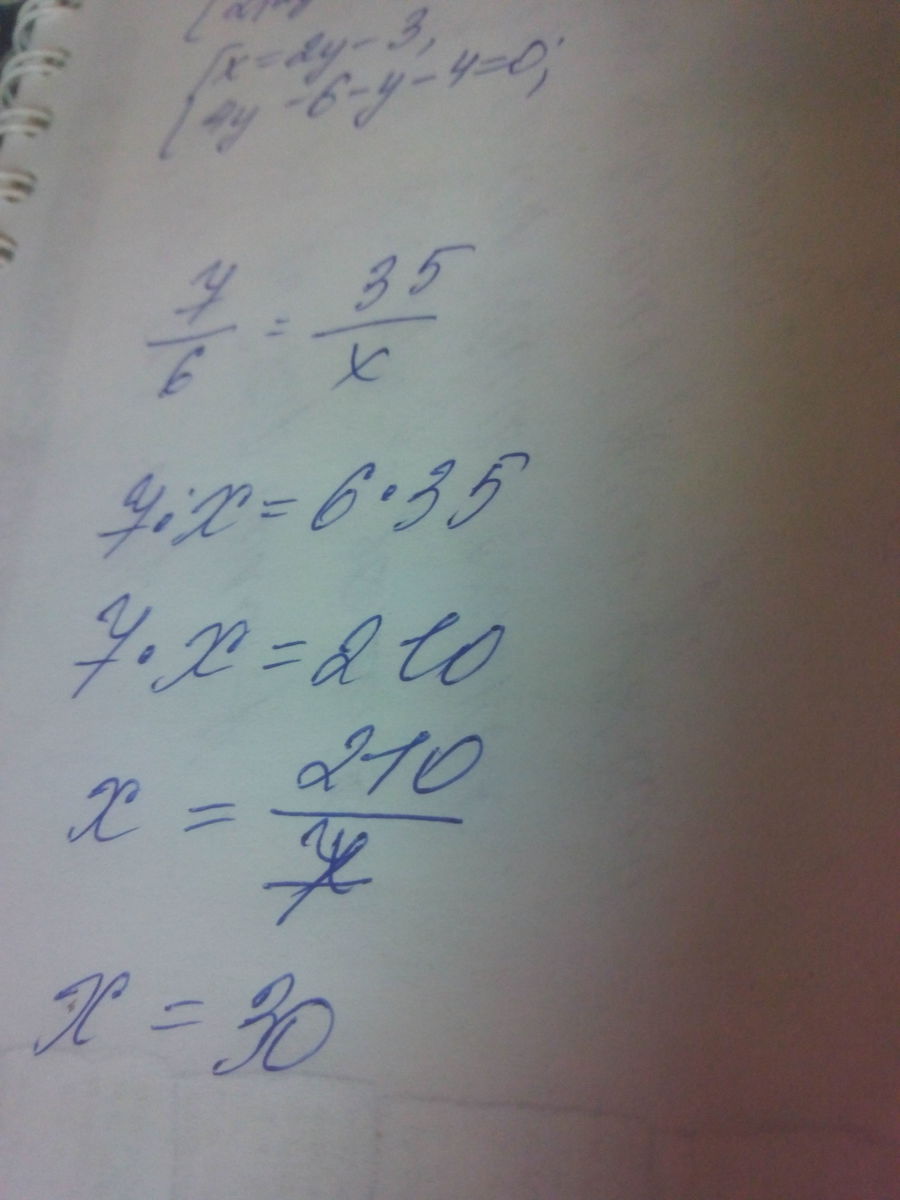 x = 2y - 3,
4y - 6 - y - 4 = 0;
7/6 = 35/x
7 · x = 6 · 35
7 · x = 210
x = 210/7
x = 30